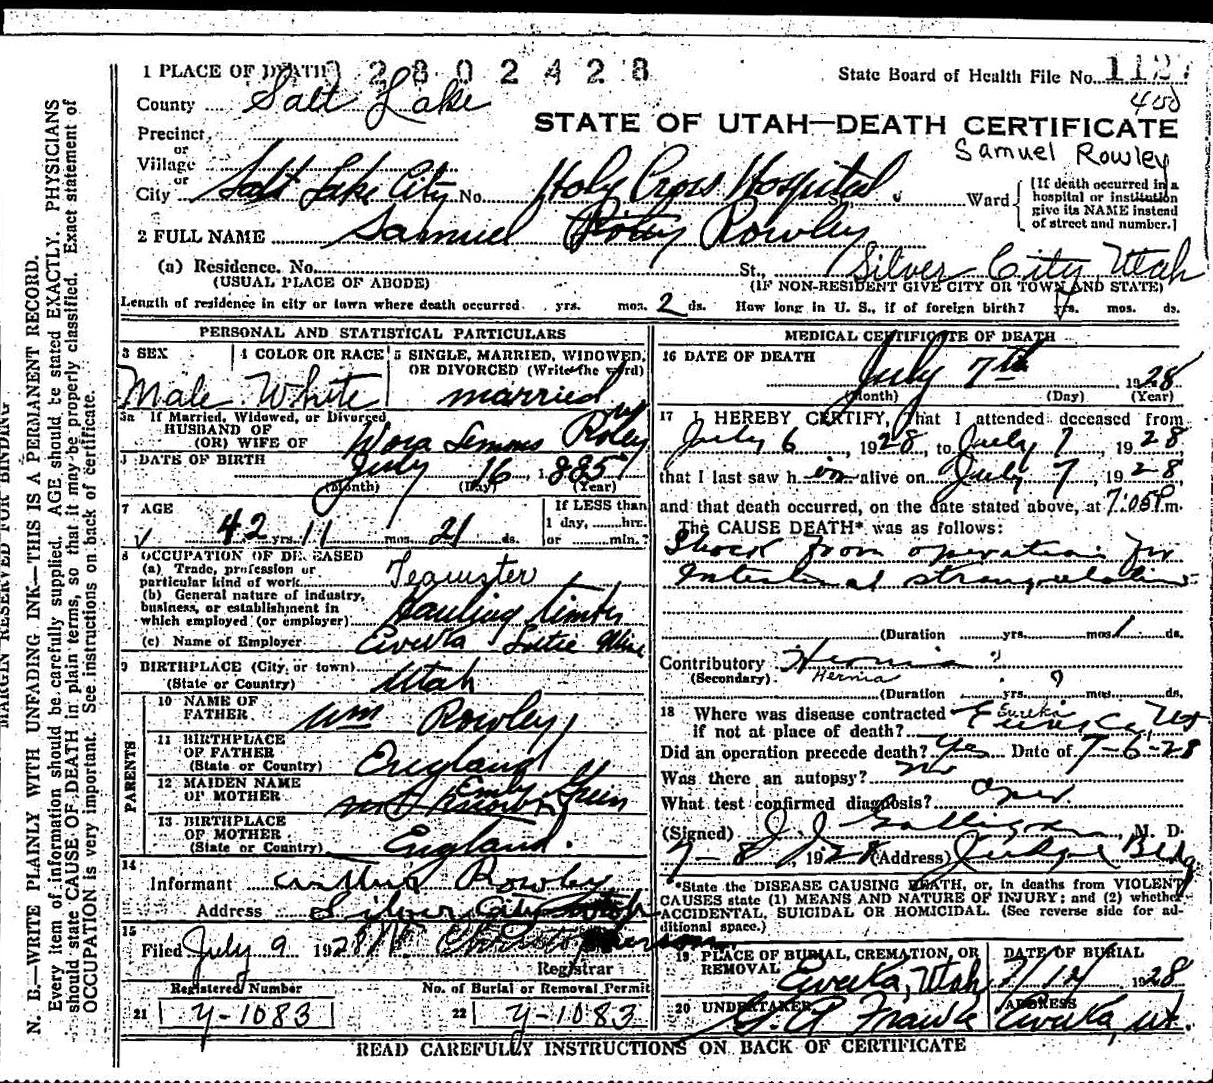 1 PLACE OF DEATH 02802428 State Board of Health File No. 1127
County Salt Lake 400
Precinct STATE OF UTAH—DEATH CERTIFICATE
or Samuel Rowley
Village
or
City Salt Lake City No. Holy Cross Hospital St., Ward
(If death occurred in a hospital or institution give its NAME instead of street and number.)
2 FULL NAME Samuel Rowley
(a) Residence. No. St., Silver City Utah
(USUAL PLACE OF ABODE) (IF NON-RESIDENT GIVE CITY OR TOWN AND STATE)
Length of residence in city or town where death occurred. yrs. mos. 2 ds. How long in U. S., if of foreign birth? yrs. mos. ds.
PERSONAL AND STATISTICAL PARTICULARS
3 SEX 4 COLOR OR RACE 5 SINGLE, MARRIED, WIDOWED,
OR DIVORCED (Write the word)
Male White married
3a If Married, Widowed, or Divorced
HUSBAND OF
(OR) WIFE OF
6 DATE OF BIRTH July 16 1885
(Month) (Day) (Year)
7 AGE 42 yrs. 11 mos. 21 ds.
If LESS than
1 day, hrs.
or min.?
8 OCCUPATION OF DECEASED
(a) Trade, profession or
particular kind of work Teamster
(b) General nature of industry,
business, or establishment in
which employed (or employer) Hauling timber
(c) Name of Employer Eureka Mine
9 BIRTHPLACE (City, or town)
(State or Country) Utah
PARENTS
10 NAME OF
FATHER Wm Rowley
11 BIRTHPLACE
OF FATHER
(State or Country) England
12 MAIDEN NAME
OF MOTHER Green
13 BIRTHPLACE
OF MOTHER
(State or Country) England.
14
Informant Arthur Rowley
Address Silver City Utah
15
Filed July 9 1928
Registrar
Registered Number No. of Burial or Removal Permit
21 Y-1083 22 Y-1083
MEDICAL CERTIFICATE OF DEATH
16 DATE OF DEATH July 7th 1928
(Month) (Day) (Year)
17 I HEREBY CERTIFY, That I attended deceased from
July 6, 1928, to July 7, 1928
that I last saw h im alive on July 7, 1928
and that death occurred, on the date stated above, at 7:05P.m.
The CAUSE DEATH* was as follows:
Shock from operation for
Intestinal strangulation
(Duration yrs. mos. 1 ds.
Contributory Hernia ?
(Secondary) Hernia
(Duration yrs. ? mos. ds.
18 Where was disease contracted Eureka
if not at place of death? Eureka, Ut
Did an operation precede death? Yes Date of 7-6-28
Was there an autopsy? no
What test confirmed diagnosis? Oper.
(Signed) J. J. Galligan, M. D.
7-8, 1928 (Address) Judge Bldg
*State the DISEASE CAUSING DEATH, or, in deaths from VIOLENT
CAUSES state (1) MEANS AND NATURE OF INJURY; and (2) whether
ACCIDENTAL, SUICIDAL OR HOMICIDAL. (See reverse side for additional space.)
19 PLACE OF BURIAL, CREMATION, OR
REMOVAL Eureka, Utah
DATE OF BURIAL
1928
20 UNDERTAKER
ADDRESS
Eureka, Ut.
READ CAREFULLY INSTRUCTIONS ON BACK OF CERTIFICATE
MARGIN RESERVED FOR BINDING
N. B.—WRITE PLAINLY WITH UNFADING INK—THIS IS A PERMANENT RECORD.
Every item of information should be carefully supplied. AGE should be stated EXACTLY. PHYSICIANS
should state CAUSE OF DEATH in plain terms, so that it may be properly classified. Exact statement of
OCCUPATION is very important. See instructions on back of certificate.